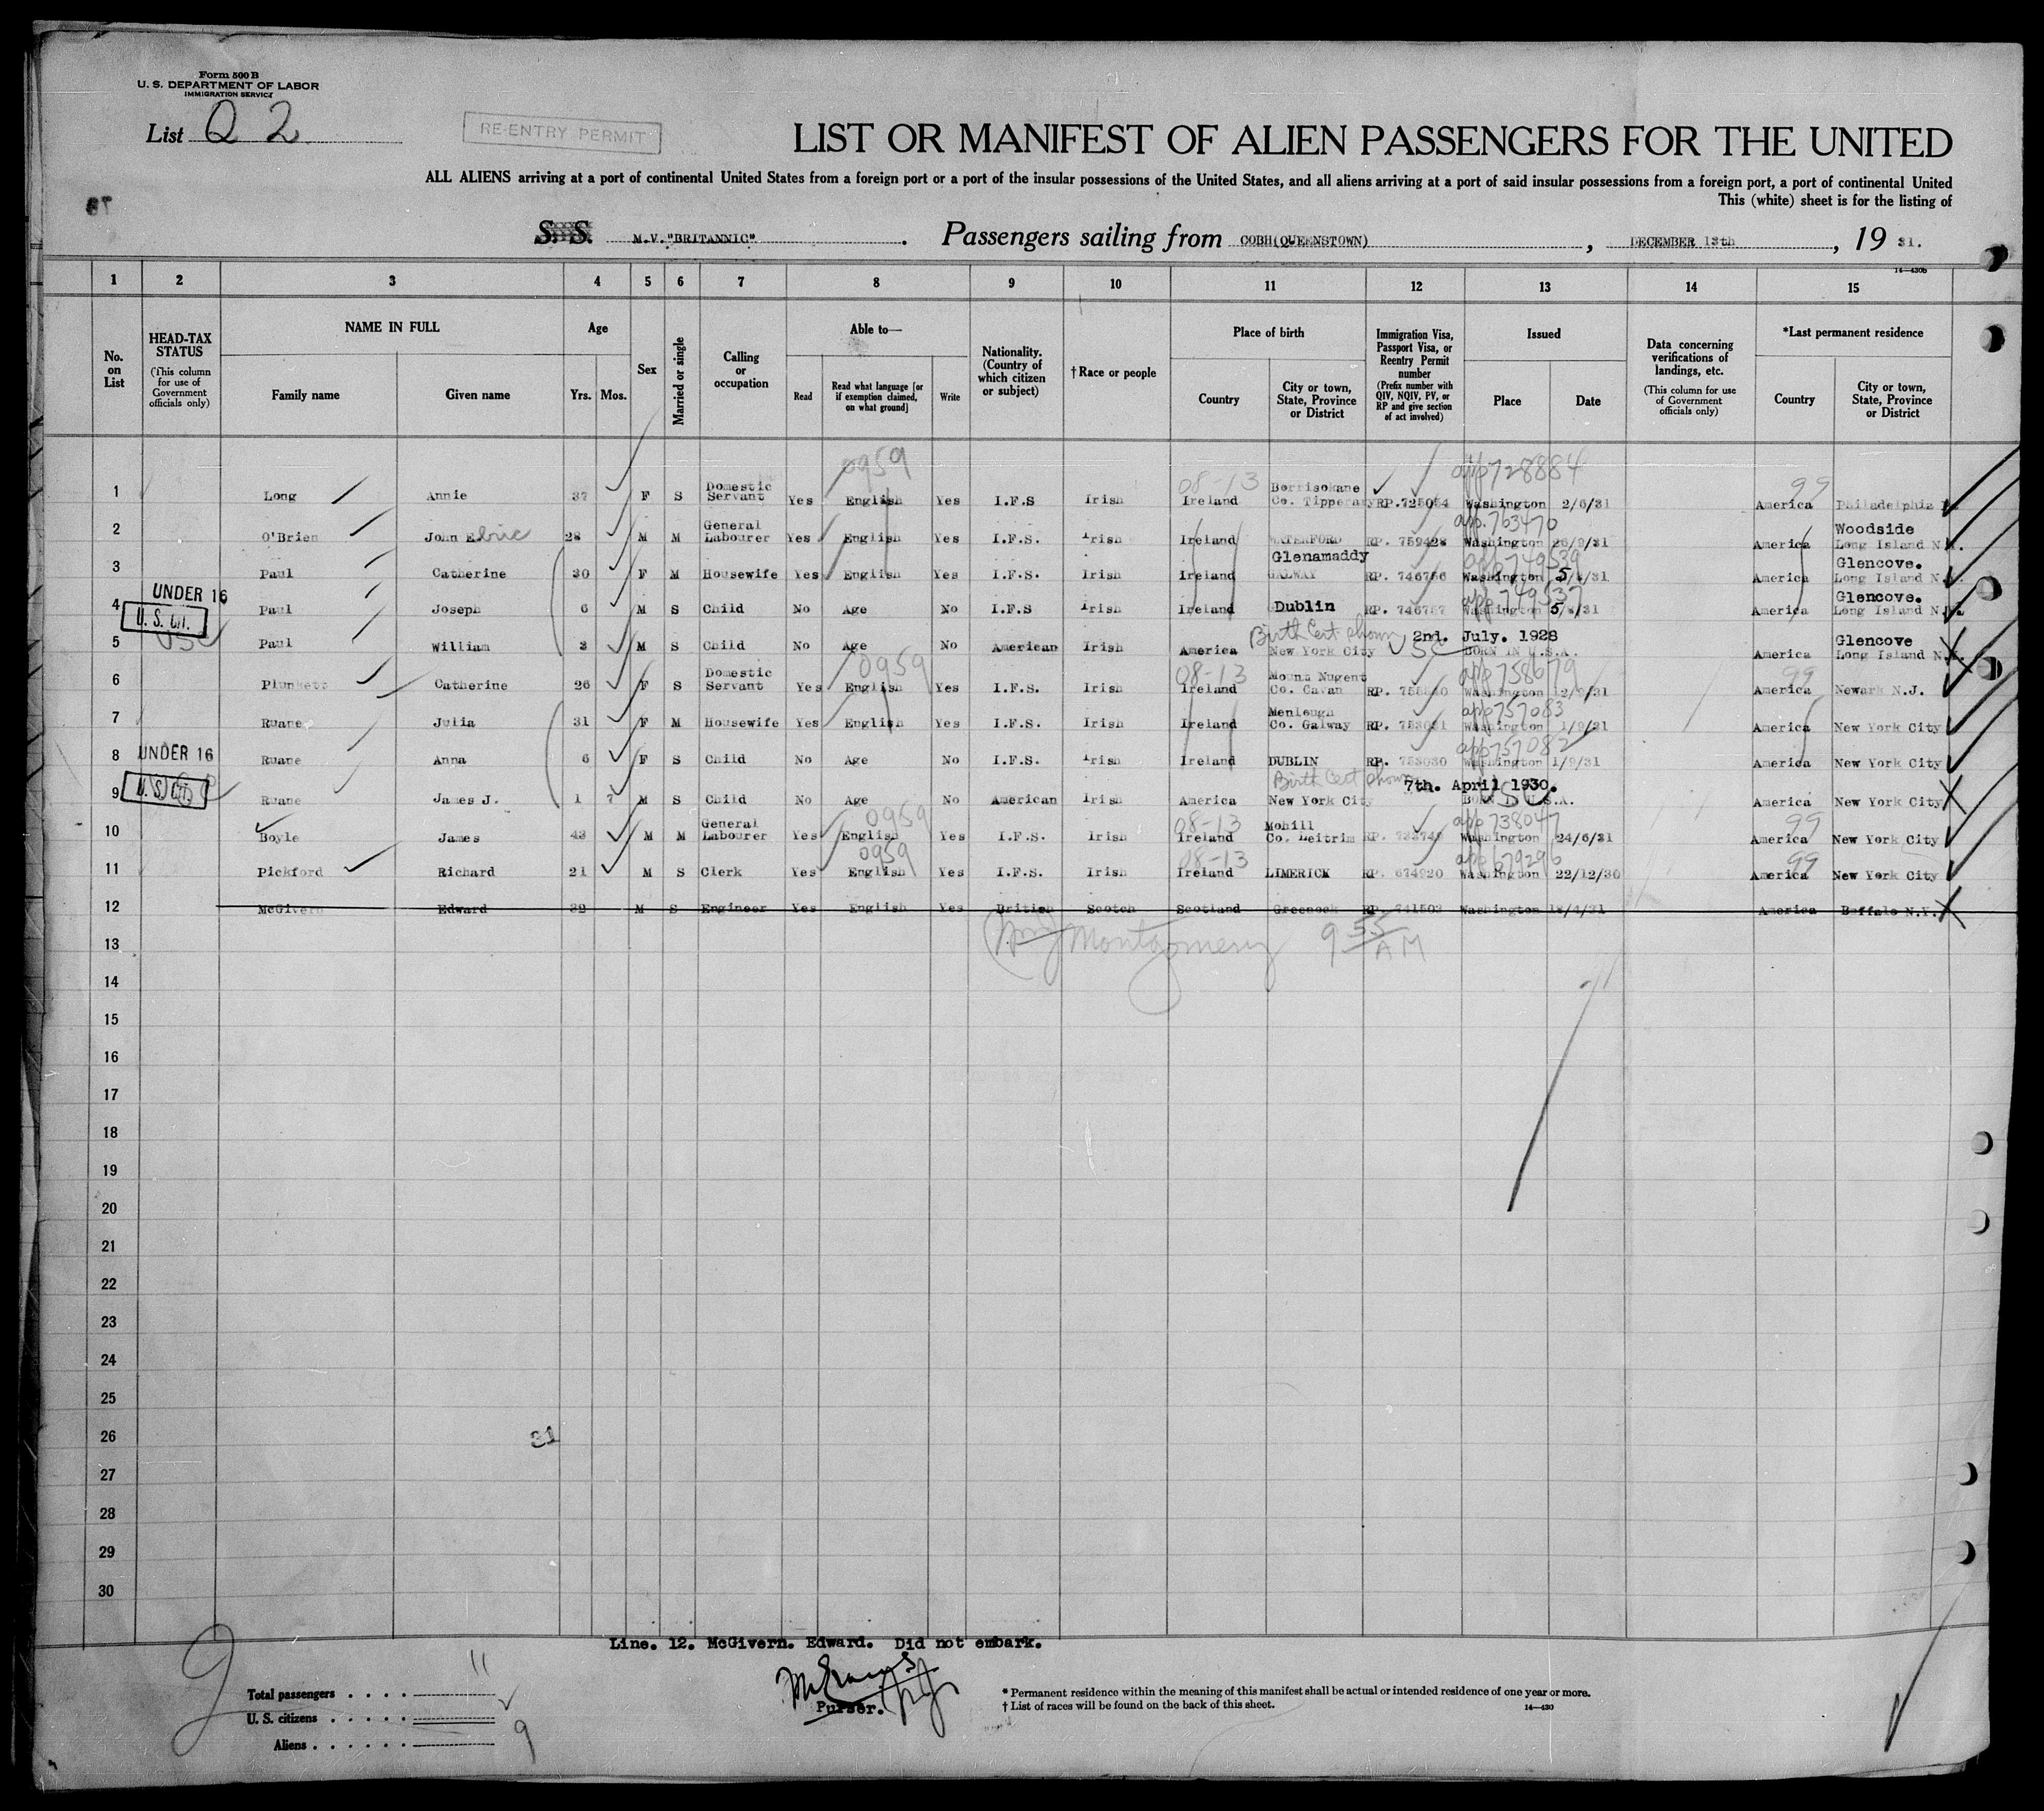 Form 500 B
U. S. DEPARTMENT OF LABOR
IMMIGRATION SERVICE
List Q 2
RE-ENTRY PERMIT
LIST OR MANIFEST OF ALIEN PASSENGERS FOR THE UNITED
ALL ALIENS arriving at a port of continental United States from a foreign port or a port of the insular possessions of the United States, and all aliens arriving at a port of said insular possessions from a foreign port, a port of continental United
This (white) sheet is for the listing of
S. S. M.V."BRITANNIC". Passengers sailing from COBH(QUEENSTOWN), DECEMBER 13th, 19 31.
14—430b
1 2 3 4 5 6 7 8 9 10 11 12 13 14 15
No. on List
HEAD-TAX STATUS
(This column for use of Government officials only)
NAME IN FULL
Family name Given name
Age
Yrs. Mos.
Sex
Married or single
Calling or occupation
Able to—
Read
Read what language [or if exemption claimed, on what ground]
Write
Nationality. (Country of which citizen or subject)
† Race or people
Place of birth
Country
City or town, State, Province or District
Immigration Visa, Passport Visa, or Reentry Permit number
(Prefix number with QIV, NQIV, PV, or RP and give section of act involved)
Issued
Place Date
Data concerning verifications of landings, etc.
(This column for use of Government officials only)
*Last permanent residence
Country
City or town, State, Province or District
0959 app728884
Domestic 08-13 Borrisokane 99
1 Long Annie 37 F S Servant Yes English Yes I.F.S Irish Ireland Co. Tipperary RP.725054 Washington 2/6/31 America Philadelphia
General app.763470 Woodside
2 O'Brien John Eric 28 M M Labourer Yes English Yes I.F.S. Irish Ireland WATERFORD RP. 759428 Washington 26/9/31 America Long Island N.Y.
Glenamaddy app749539 Glencove.
3 Paul Catherine 30 F M Housewife Yes English Yes I.F.S. Irish Ireland GALWAY RP. 746756 Washington America Long Island
UNDER 16 app749537 Glencove.
4 Paul Joseph 6 M S Child No Age No I.F.S Irish Ireland Dublin RP. 746757 Washington America Long Island N.Y.
U. S. Cit.
USC Birth Cert shown USC 2nd. July. 1928 Glencove
5 Paul William 3 M S Child No Age No American Irish America New York City BORN IN U.S.A. America Long Island
0959 app758679
Domestic 08-13 Mount Nugent 99
6 Plunkett Catherine 26 F S Servant Yes English Yes I.F.S. Irish Ireland Co. Cavan RP. Washington 12/9/31 America Newark N.J.
Menlough app757083
7 Ruane Julia 31 F M Housewife Yes English Yes I.F.S. Irish Ireland Co. Galway RP. 753031 Washington 1/9/31 America New York City
UNDER 16 app757082
8 Ruane Anna 6 F S Child No Age No I.F.S. Irish Ireland DUBLIN RP. 753030 Washington 1/9/31 America New York City
U. S. Cit. Birth Cert shown 7th. April 1930.
9 Ruane James J. 1 7 M S Child No Age No American Irish America New York City BORN IN U.S.A. America New York City
0959 app738047
General 08-13 Mohill 99
10 Boyle James 43 M M Labourer Yes English Yes I.F.S. Irish Ireland Co. Leitrim RP. 733740 Washington 24/6/31 America New York City
0959 08-13 app679296 99
11 Pickford Richard 21 M S Clerk Yes English Yes I.F.S. Irish Ireland LIMERICK RP. 674920 Washington 22/12/30 America New York City
12 McGivern Edward 32 M S Engineer Yes English Yes British Scotch Scotland Greenock RP. 741503 Washington America Buffalo N.Y.
13 Montgomery 9 55 AM
14
15
16
17
18
19
20
21
22
23
24
25
26
31
27
28
29
30
Line. 12. McGivern. Edward. Did not embark.
Total passengers 11
U. S. citizens
Aliens 9
Purser.
* Permanent residence within the meaning of this manifest shall be actual or intended residence of one year or more.
† List of races will be found on the back of this sheet.
14—430